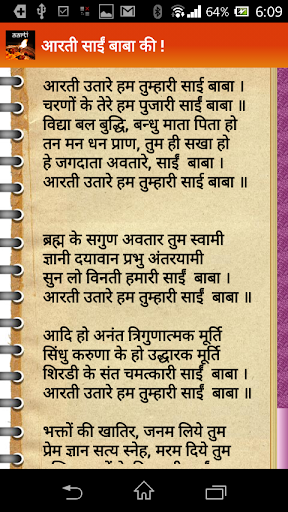 64% 6:09
aarti
आरती साईं बाबा की !
आरती उतारे हम तुम्हारी साई बाबा ।
चरणों के तेरे हम पुजारी साईं बाबा ॥
विद्या बल बुद्धि, बन्धु माता पिता हो
तन मन धन प्राण, तुम ही सखा हो
हे जगदाता अवतारे, साईं बाबा ।
आरती उतारे हम तुम्हारी साईं बाबा ॥
ब्रह्म के सगुण अवतार तुम स्वामी
ज्ञानी दयावान प्रभु अंतरयामी
सुन लो विनती हमारी साईं बाबा ।
आरती उतारे हम तुम्हारी साईं बाबा ॥
आदि हो अनंत त्रिगुणात्मक मूर्ति
सिंधु करुणा के हो उद्धारक मूर्ति
शिरडी के संत चमत्कारी साईं बाबा ।
आरती उतारे हम तुम्हारी साईं बाबा ॥
भक्तों की खातिर, जनम लिये तुम
प्रेम ज्ञान सत्य स्नेह, मरम दिये तुम